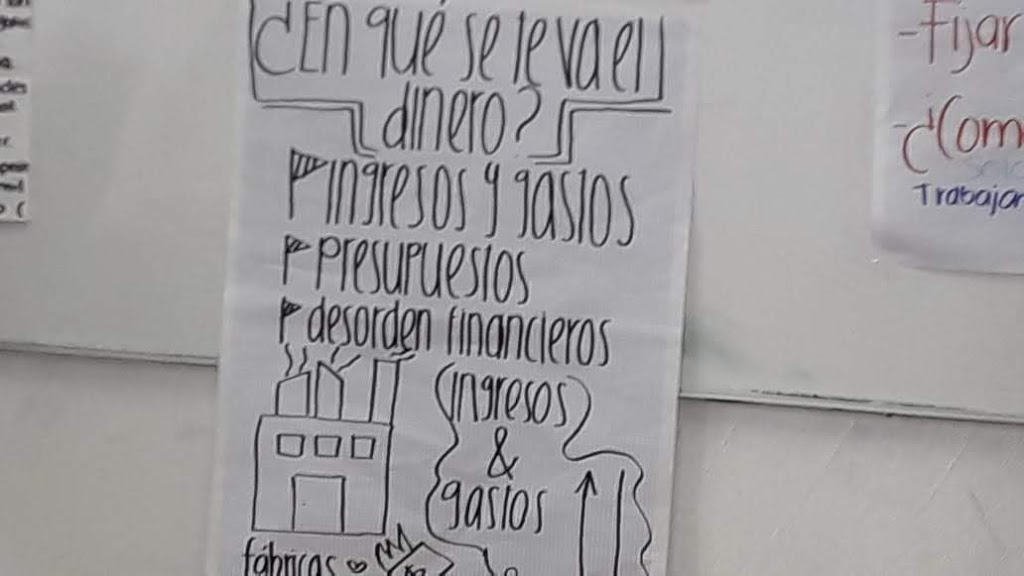 ¿En qué se te va el
dinero?
ingresos y gastos
presupuestos
desorden financieros
(ingresos)
&
gastos
fábricas
-Fijar
-¿Com
Trabajar